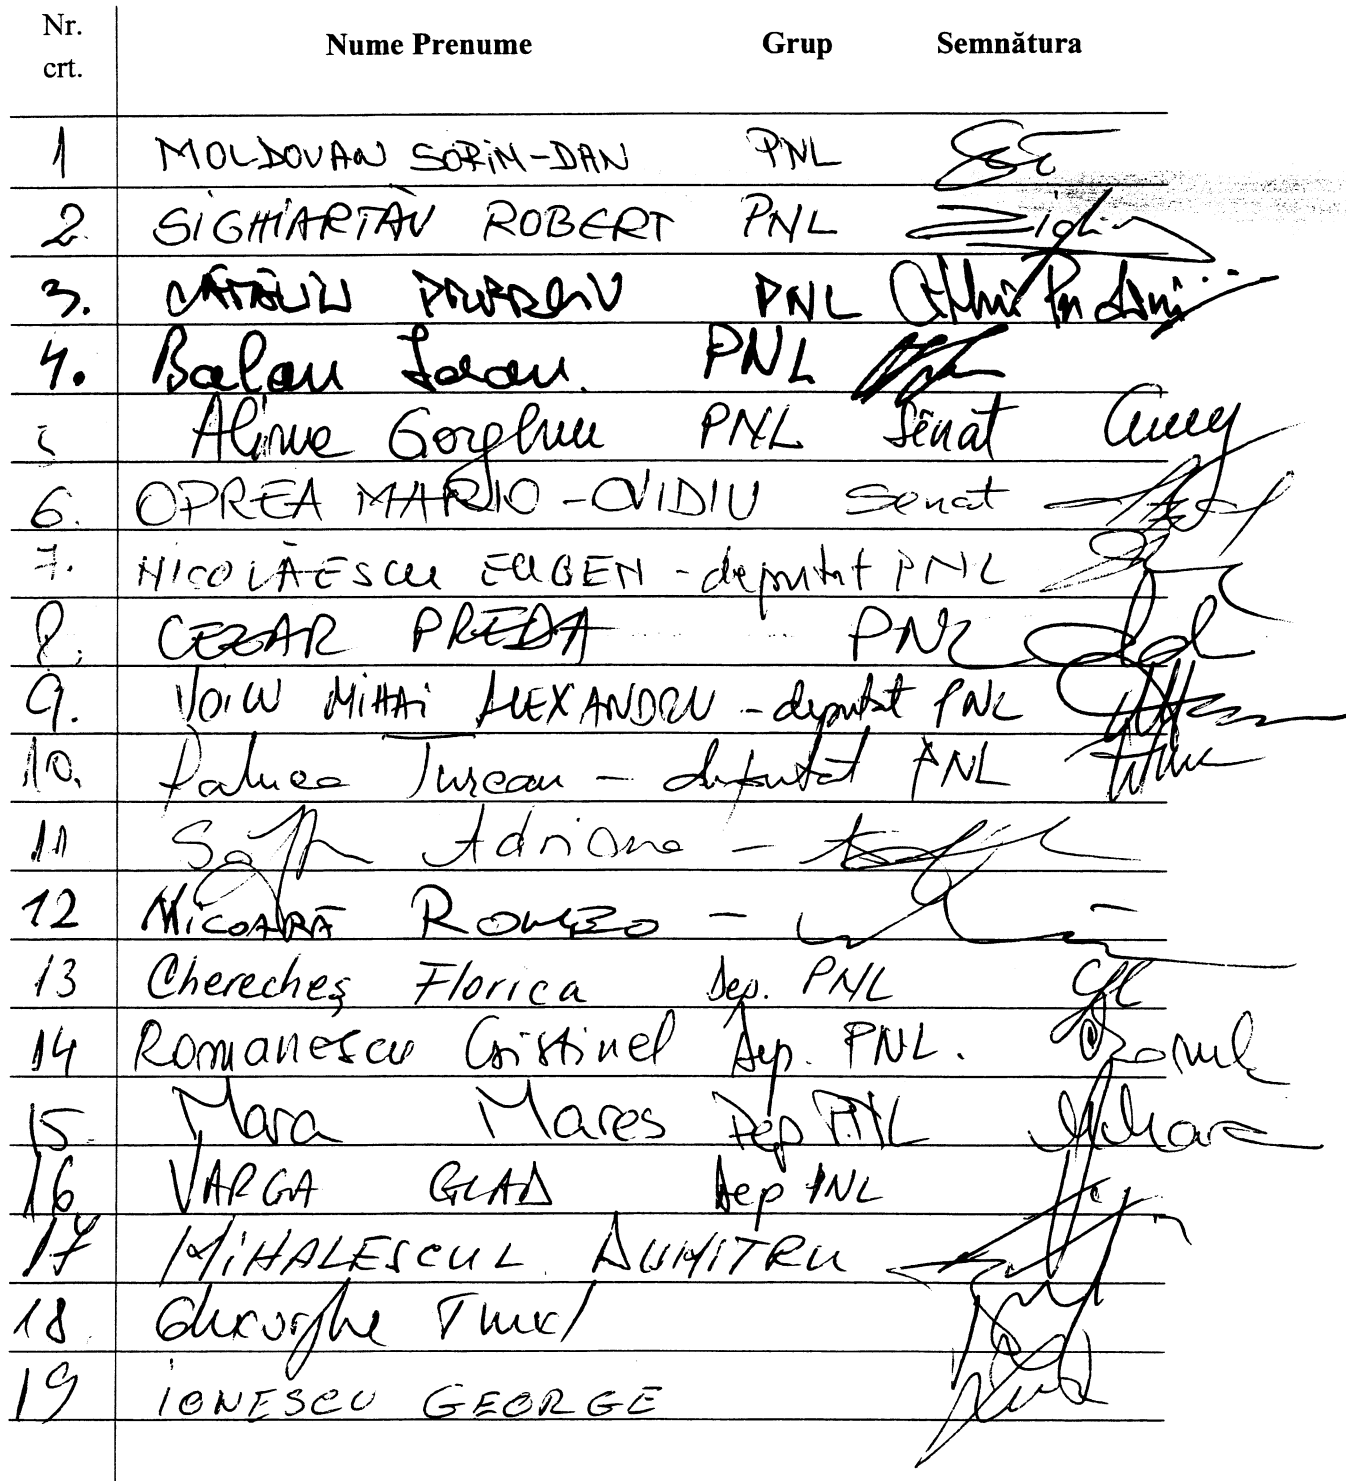 Nr. crt. Nume Prenume Grup Semnătura
1 MOLDOVAN SORIN-DAN PNL
2. SIGHIARTĂU ROBERT PNL
3. PNL
4. Balan Ioan. PNL
Alina Gorghiu PNL Senat
6. OPREA MARIO-OVIDIU Senat
7. NICOLĂESCU EUGEN - deputat PNL
8. CEZAR PREDA PNL
9. VOICU MIHAI ALEXANDRU - deputat PNL
10. Raluca Turcan - deputat PNL
11 Adriana -
12 NICOARĂ ROMEO -
13 Cherecheș Florica Dep. PNL
14 Romanescu Cristinel Dep. PNL.
15. Mara Mares Dep PNL
16 VARGA GLAD Dep PNL
17 MIHALESCUL DUMITRU
18 Gheorghe
19 IONESCU GEORGE